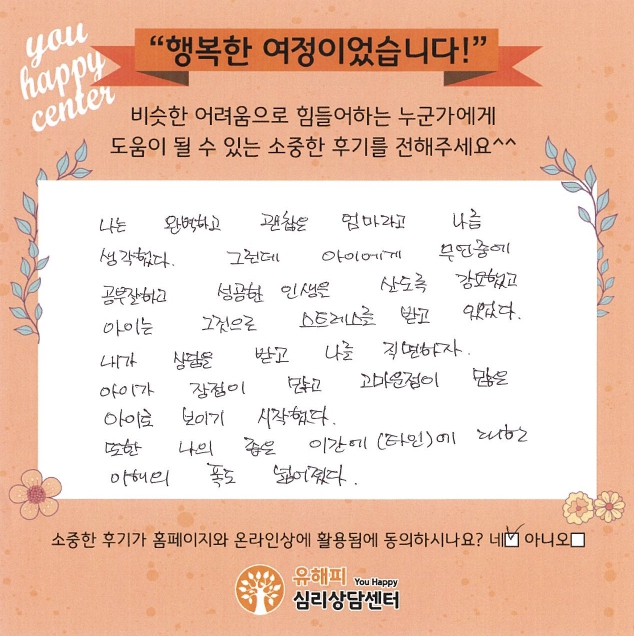 you
happy
center
“행복한 여정이었습니다!”
비슷한 어려움으로 힘들어하는 누군가에게
도움이 될 수 있는 소중한 후기를 전해주세요^^
나는 완벽하고 괜찮은 엄마라고 나름
생각했다. 그런데 아이에게 무언중에
공부잘하고 성공한 인생을 살도록 강요했고
아이는 그것으로 스트레스를 받고 있었다.
내가 상담을 받고 나를 직면하자.
아이가 장점이 많고 고마운점이 많은
아이로 보이기 시작했다.
또한 나의 좁은 이간에 (타인)에 대한
이해의 폭도 넓어졌다.
소중한 후기가 홈페이지와 온라인상에 활용됨에 동의하시나요? 네☑ 아니오☐
유해피 You Happy
심리상담센터